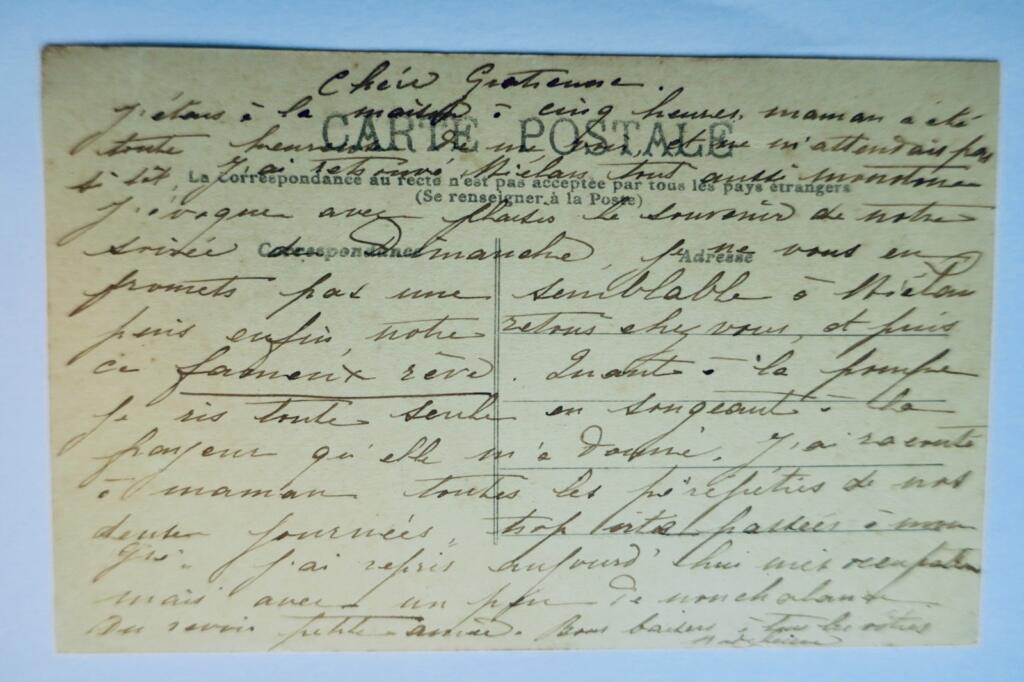 Chère Gratienne.
J'étais à la maison à cinq heures, maman a été
CARTE POSTALE
toute heureuse de me voir, et ne m'attendais pas
si tôt. J'ai retrouvé Miélan tout aussi monotone
La Correspondance au recto n'est pas acceptée par tous les pays étrangers
(Se renseigner à la Poste)
J'évoque avec plaisir le souvenir de notre
Correspondance
Adresse
soirée de Dimanche, je ne vous en
promets pas une semblable à Miélan
puis enfin, notre retour chez vous, et puis
ce fameux rêve. Quant à la pompe
je ris toute seule en songeant à la
frayeur qu'elle m'a donné. J'ai raconté
à maman toutes les péripéties de nos
deux journées, trop vite passées à mon
gré. J'ai repris aujourd'hui mes occupations
mais avec un peu de nonchalance.
Au revoir petite amie. Bons baisers à tous les vôtres